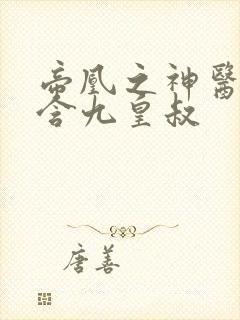 帝凰之神醫
含九皇叔
唐善